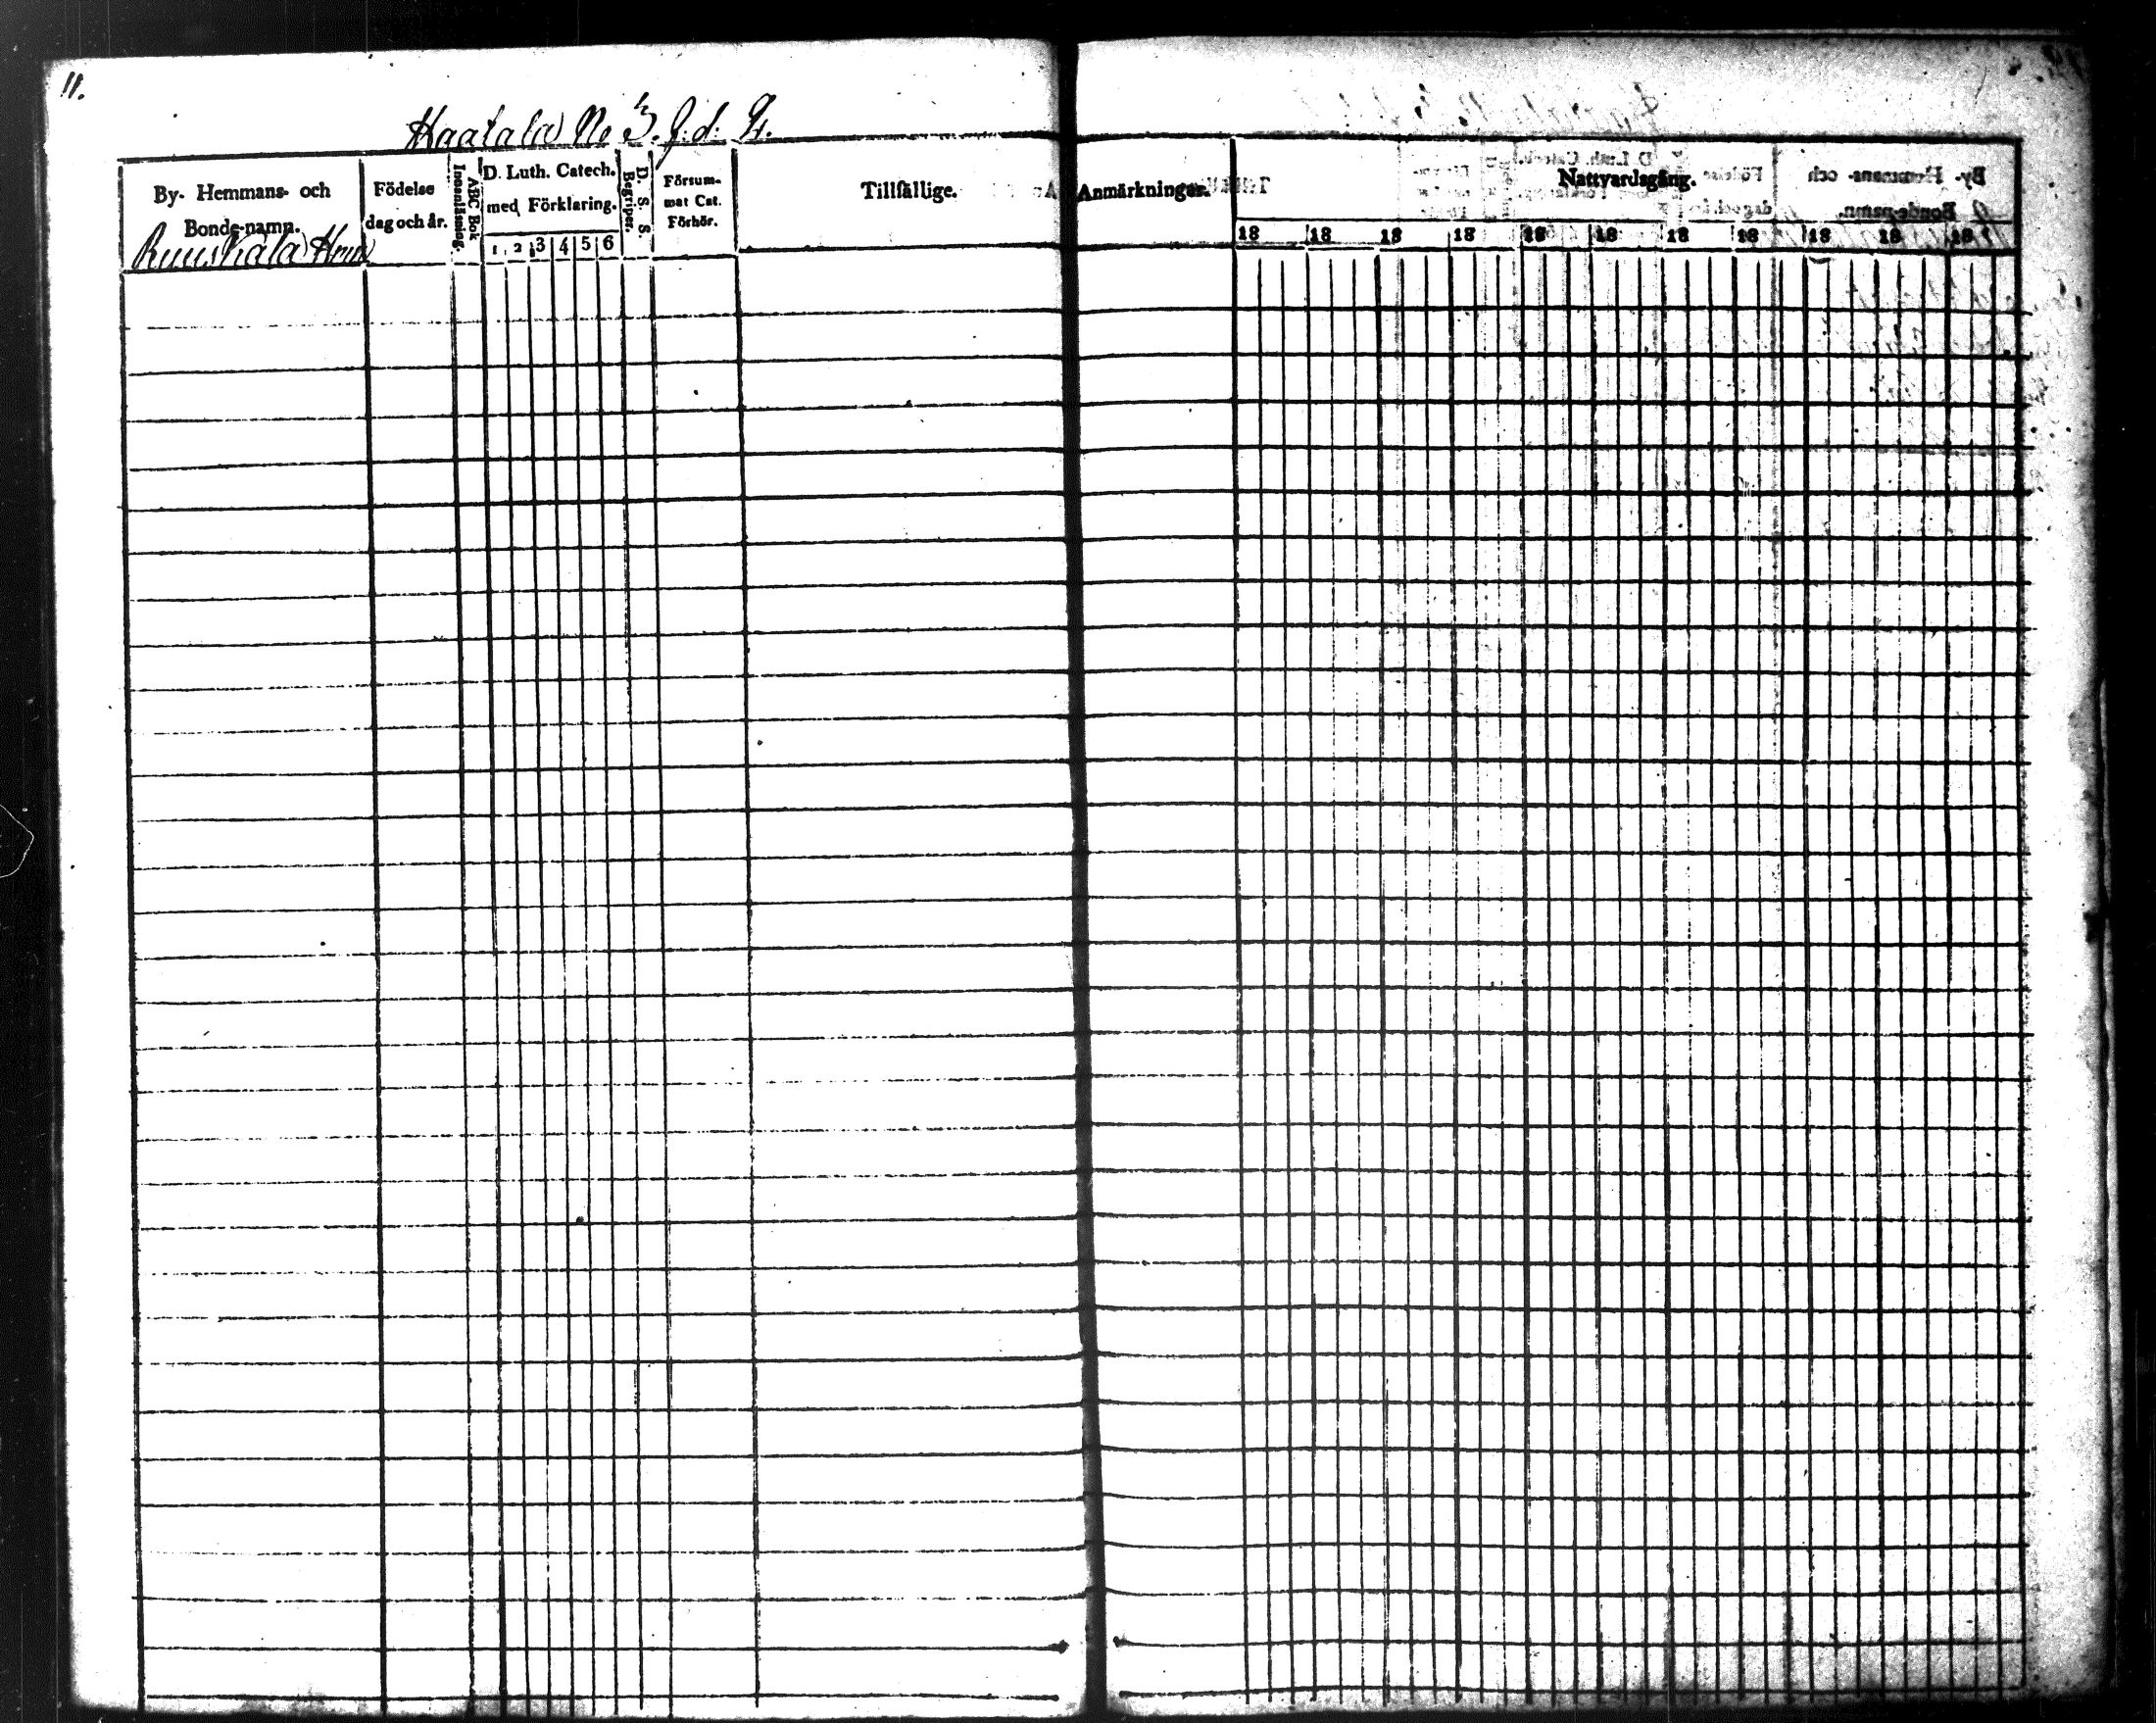 11.
Haatala No 3. G: d: 2/1.
By- Hemmans- och Bonde-namn.
Födelse dag och år.
Innanläsning.
ABC Bok
D. Luth. Catech. med Förklaring.
1 2 3 4 5 6
D. S. S. Begriper.
Försummat Cat. Förhör.
Tillfällige.
Anmärkningar.
Nattvardsgång.
18 18 18 18 18 18 18 18 18 18 18
Ruuskala Hem